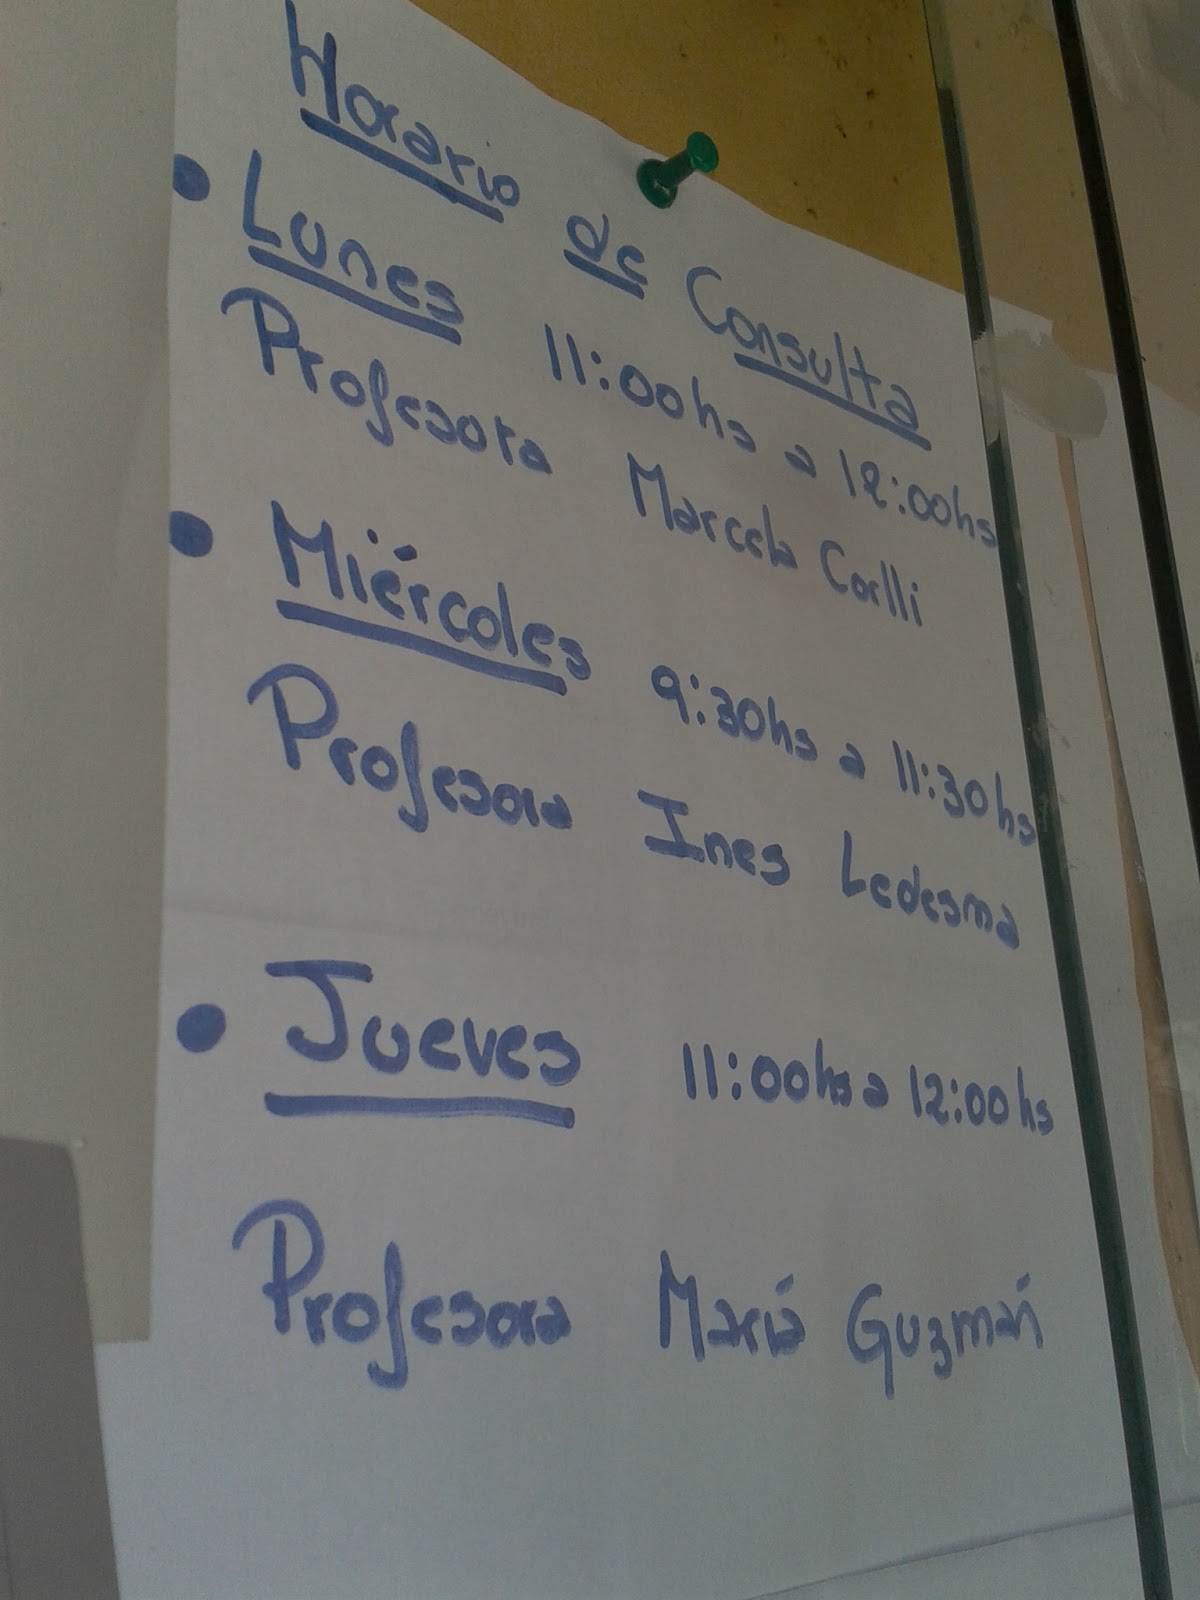 Horario de Consulta
• Lunes 11:00hs a 12:00hs
Profesora Marcela Corlli
• Miércoles 9:30hs a 11:30hs
Profesora Ines Ledesma
• Jueves 11:00hs a 12:00hs
Profesora María Guzmán